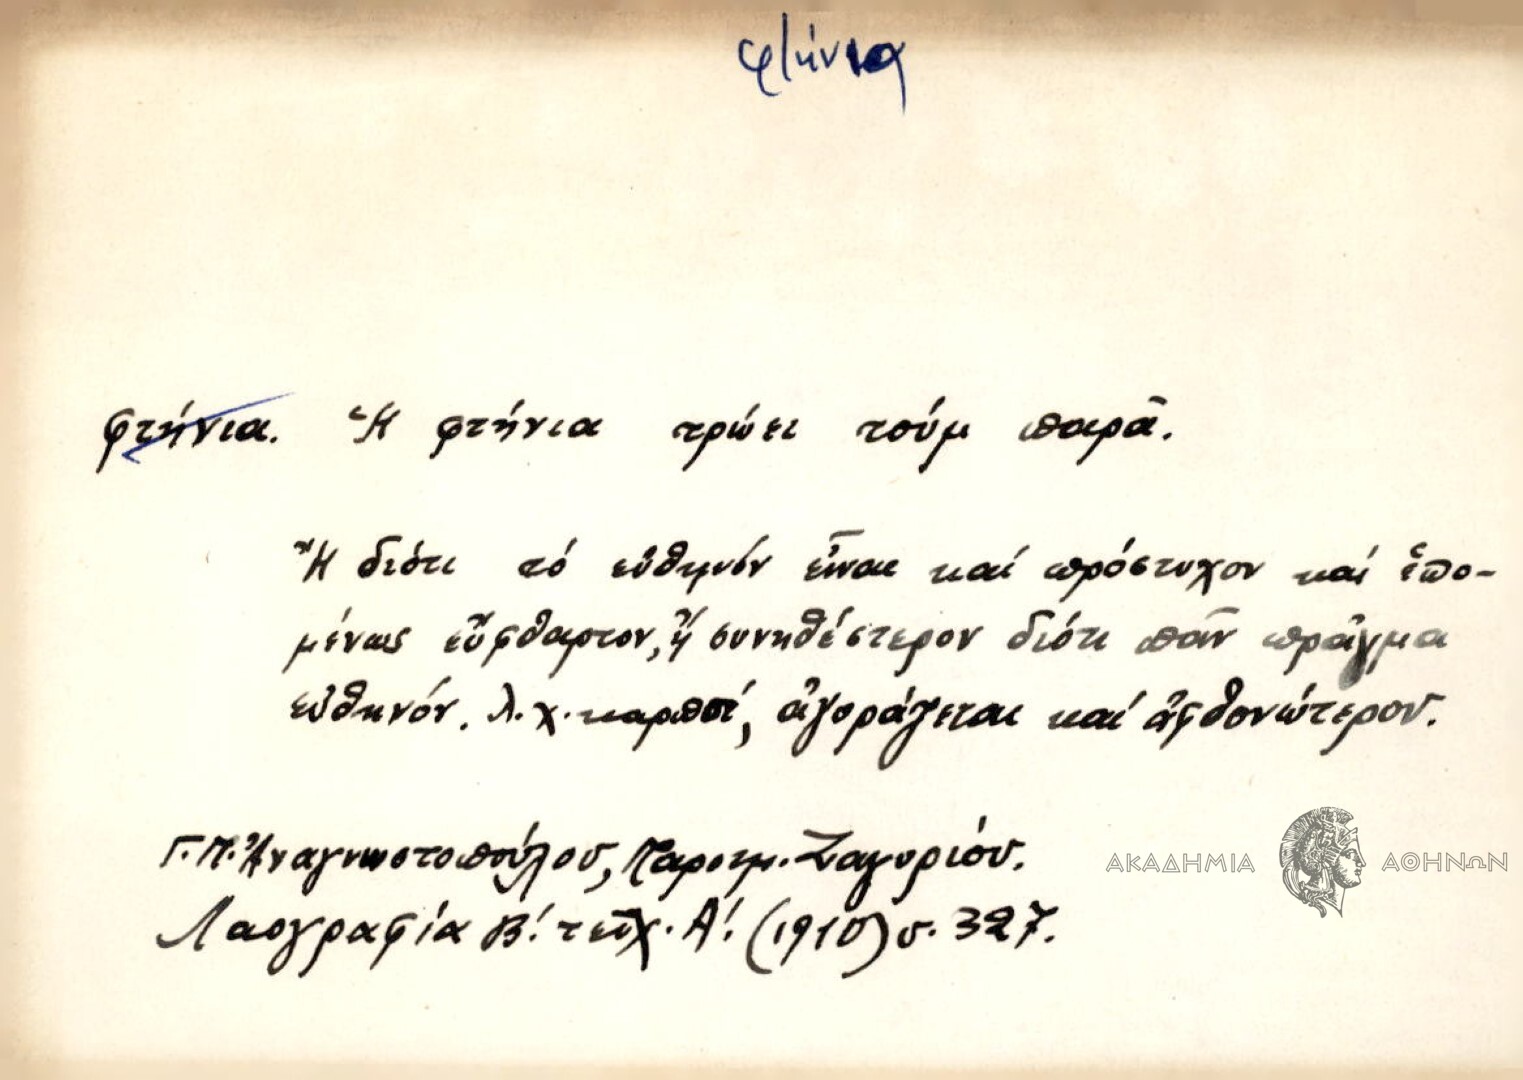 φτήνια
φτήνια. Ἡ φτήνια τρώει τούμ παρᾶ.
Ἤ διότι τό εὐθηνόν εἶναι καί πρόστυχον καί ἑπο-
μένως εὔφθαρτον, ἤ συνηθέστερον διότι πᾶν πρᾶγμα
εὐθηνόν. λ.χ. καρποί, ἀγοράζεται καί ἀφθονώτερον.
Γ. Π. Ἀναγνωστοπούλου, Παροιμ. Ζαγορίου.
Λαογραφία Β! τεῦχ. Α! (1910) σ. 327.
ΑΚΑΔΗΜΙΑ ΑΘΗΝΩΝ